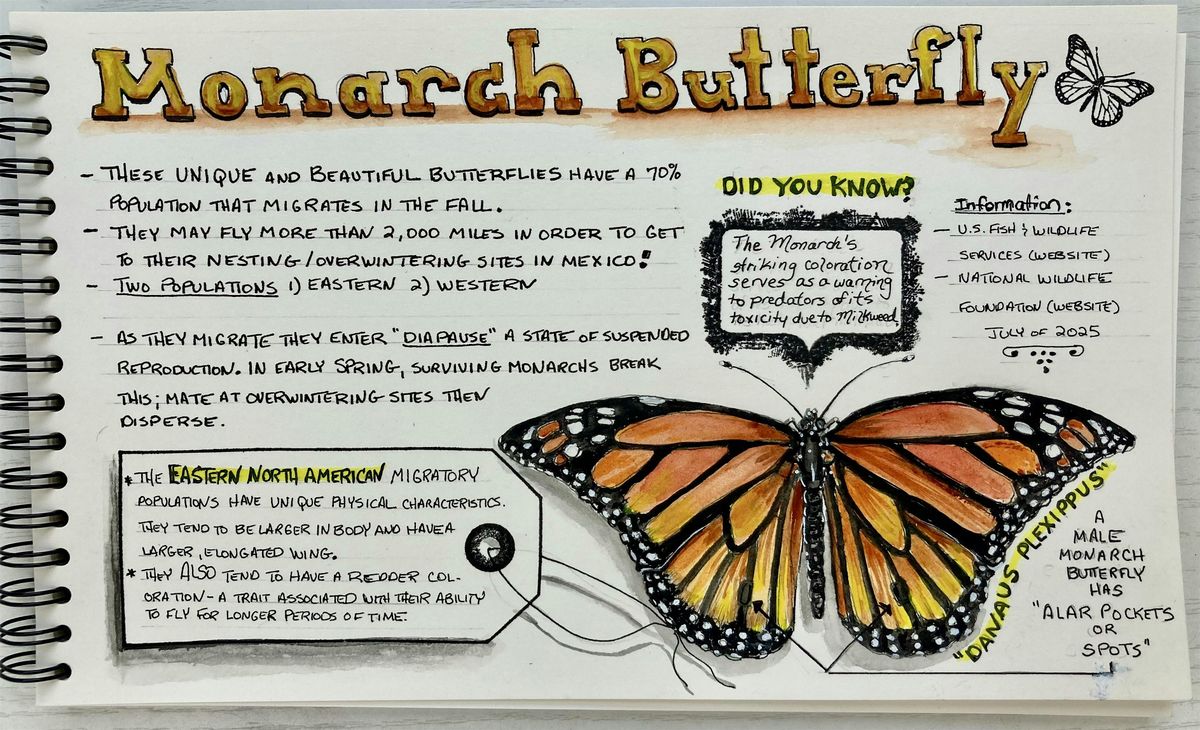 Monarch Butterfly
- THESE UNIQUE AND BEAUTIFUL BUTTERFLIES HAVE A 70%
POPULATION THAT MIGRATES IN THE FALL.
- THEY MAY FLY MORE THAN 2,000 MILES IN ORDER TO GET
TO THEIR NESTING/OVERWINTERING SITES IN MEXICO!
- TWO POPULATIONS 1) EASTERN 2) WESTERN
- AS THEY MIGRATE THEY ENTER "DIAPAUSE" A STATE OF SUSPENDED
REPRODUCTION. IN EARLY SPRING, SURVIVING MONARCHS BREAK
THIS; MATE AT OVERWINTERING SITES THEN
DISPERSE.
DID YOU KNOW?
The Monarch's
striking coloration
serves as a warning
to predators of its
toxicity due to Milkweed.
Information:
- U.S. FISH & WILDLIFE
SERVICES (WEBSITE)
- NATIONAL WILDLIFE
FOUNDATION (WEBSITE)
JULY OF 2025
* THE EASTERN NORTH AMERICAN MIGRATORY
POPULATIONS HAVE UNIQUE PHYSICAL CHARACTERISTICS.
THEY TEND TO BE LARGER IN BODY AND HAVE A
LARGER, ELONGATED WING.
* THEY ALSO TEND TO HAVE A REDDER COL-
ORATION - A TRAIT ASSOCIATED WITH THEIR ABILITY
TO FLY FOR LONGER PERIODS OF TIME.
"DANAUS PLEXIPPUS"
A
MALE
MONARCH
BUTTERFLY
HAS
"ALAR POCKETS
OR
SPOTS"